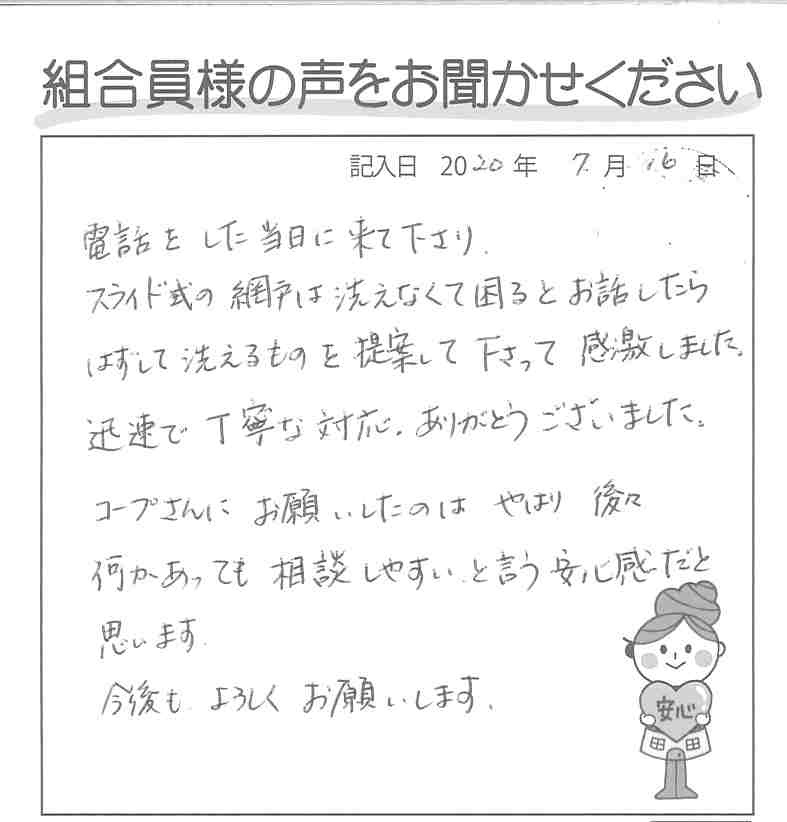 組合員様の声をお聞かせください
記入日 2020年 7月 16日
電話をした当日に来て下さり、
スライド式の網戸は洗えなくて困るとお話したら
はずして洗えるものを提案して下さって感激しました。
迅速で丁寧な対応。ありがとうございました。
コープさんにお願いしたのはやはり後々
何かあっても相談しやすいと言う安心感だと
思います。
今後もよろしくお願いします。
安心